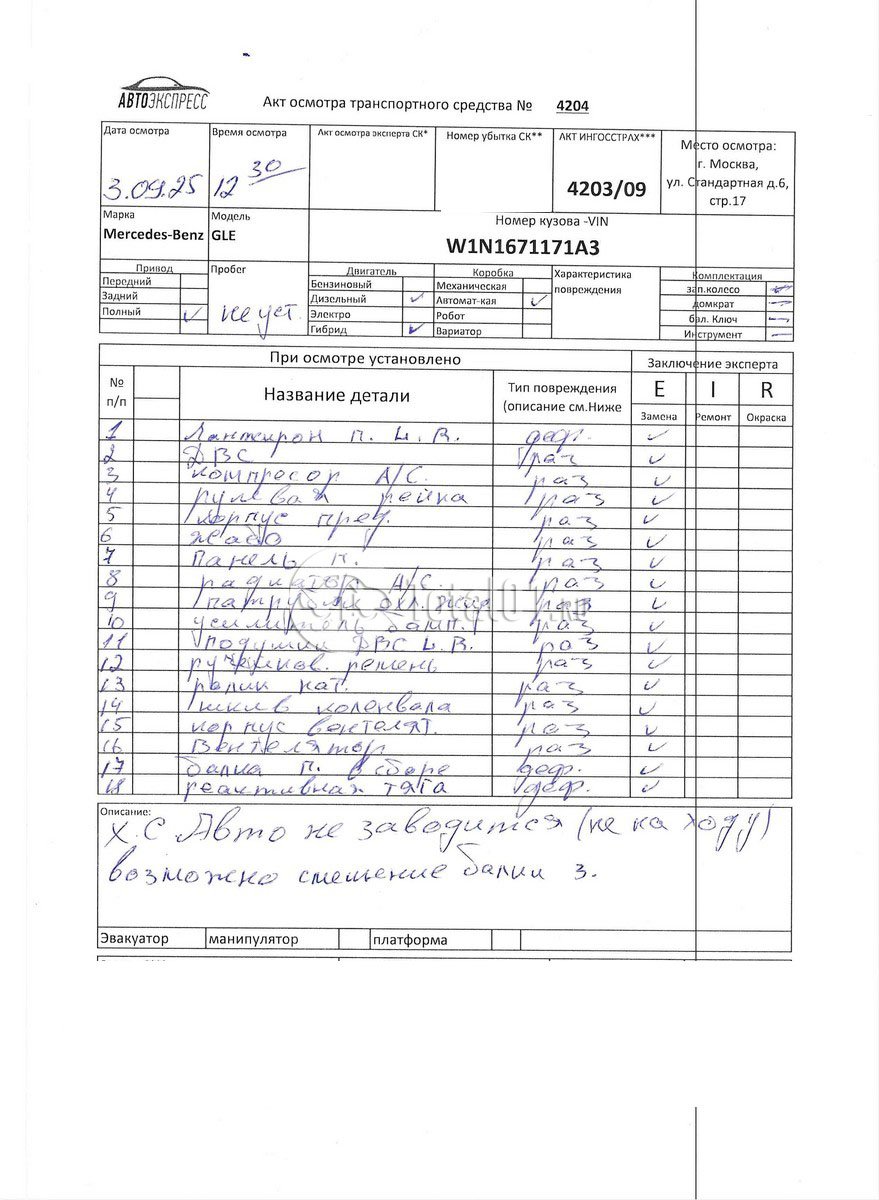 АВТОЭКСПРЕСС
Акт осмотра транспортного средства № 4204
Дата осмотра Время осмотра Акт осмотра эксперта СК* Номер убытка СК** АКТ ИНГОССТРАХ*** Место осмотра:
г. Москва,
ул. Стандартная д.6,
стр.17
3.09.25 12 30 4203/09
Марка Модель Номер кузова -VIN
Mercedes-Benz GLE W1N1671171A3
Привод Пробег Двигатель Коробка Характеристика повреждения Комплектация
Передний Бензиновый Механическая зап.колесо
Задний Дизельный ✓ Автомат-кая ✓ домкрат —
Полный ✓ не уст. Электро Робот бал. Ключ —
Гибрид ✓ Вариатор Инструмент —
При осмотре установлено Заключение эксперта
№ п/п Название детали Тип повреждения (описание см.Ниже E I R
Замена Ремонт Окраска
1 Лонжерон п. L. R. деф. ✓
2 ДВС раз ✓
3 компресор A/C. раз ✓
4 рулевая рейка раз ✓
5 корпус пред. раз ✓
6 жабо раз ✓
7 Панель п. раз ✓
8 радиатор A/C. раз ✓
9 патрубки охл. раз ✓
10 усилитель бамп. раз ✓
11 подушки ДВС L. R. раз ✓
12 ручейков. ремень раз ✓
13 ролик нат. раз ✓
14 шкив коленвала раз ✓
15 корпус вентелят. раз ✓
16 Вентелятор раз ✓
17 балка п. в сборе деф. ✓
18 реактивная тяга деф. ✓
Описание:
Х.С Авто не заводится (не на ходу)
возможно смещение балки з.
Эвакуатор манипулятор платформа
Total01.ru